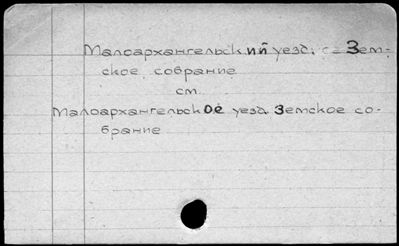 Малоархангельский уезд. с= Зем-
ское собрание
см.
Малоархангельское уезд. Земское со-
брание